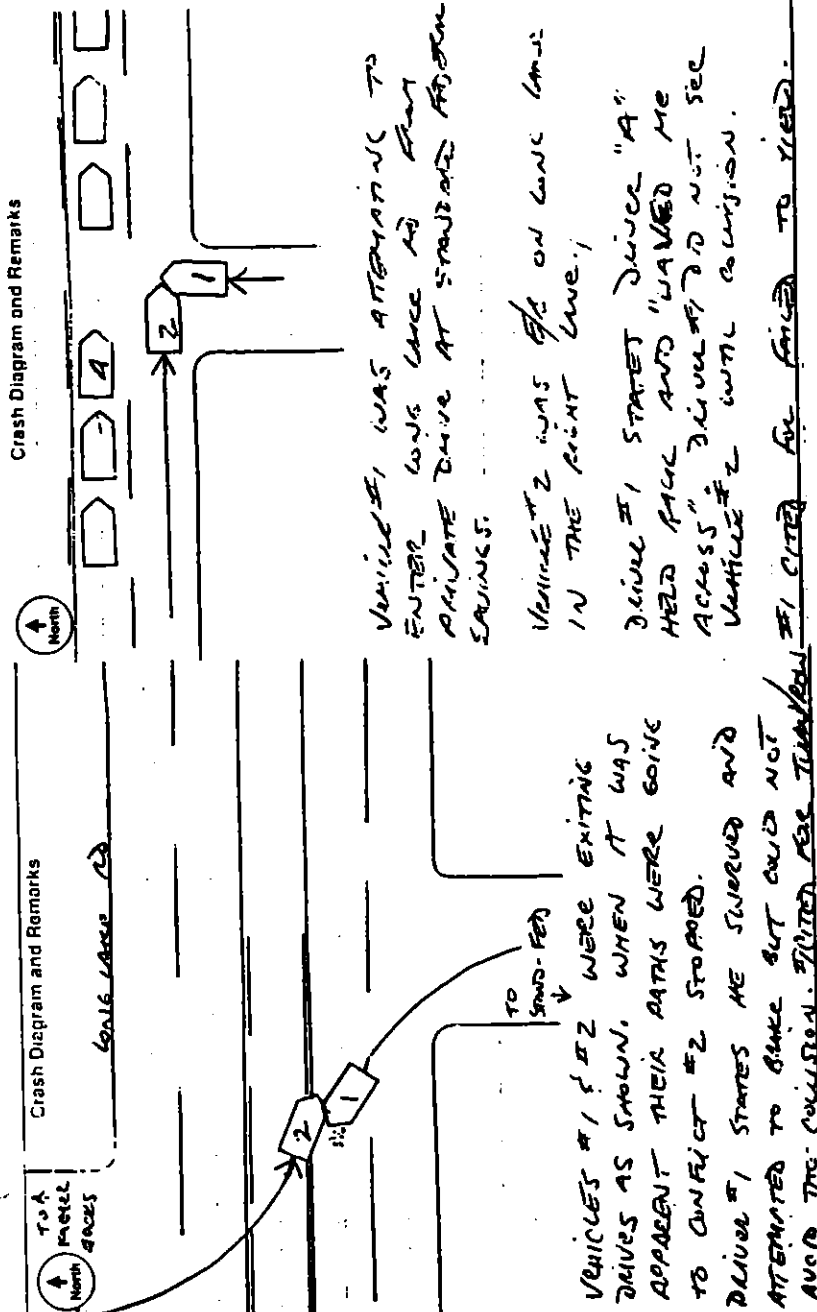 Crash Diagram and Remarks
North
TO A
FARMER
JACKS
LONG LAKE RD
2
1
TO
STAND-FED
VEHICLES #1 & #2 WERE EXITING
DRIVES AS SHOWN. WHEN IT WAS
APPARENT THEIR PATHS WERE GOING
TO CONFLICT #2 STOPPED.
DRIVER #1 STATES HE SWERVED AND
ATTEMPTED TO BRAKE BUT COULD NOT
AVOID THE COLLISION. #1 CITED FOR TURN/ROW
Crash Diagram and Remarks
North
A
2
1
VEHICLE #1 WAS ATTEMPTING TO
ENTER LONG LAKE RD FROM
PRIVATE DRIVE AT STANDARD FEDERAL
SAVINGS.
VEHICLE #2 WAS E/B ON LONG LAKE
IN THE RIGHT LANE.
DRIVER #1 STATES DRIVER "A"
HELD BACK AND "WAVED ME
ACROSS" DRIVER #1 DID NOT SEE
VEHICLE #2 UNTIL COLLISION.
#1 CITED FOR FAILED TO YIELD.